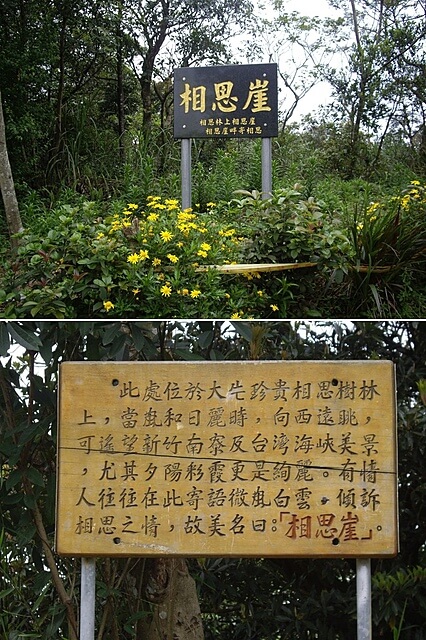 相思崖
相思林上相思崖
相思崖畔寄相思
此處位於大片珍貴相思樹林
上，當風和日麗時，向西遠眺，
可遙望新竹南寮及台灣海峽美景
，尤其夕陽彩霞更是絢麗。有情
人往往在此寄語微風白雲，傾訴
相思之情，故美名曰：「相思崖」。